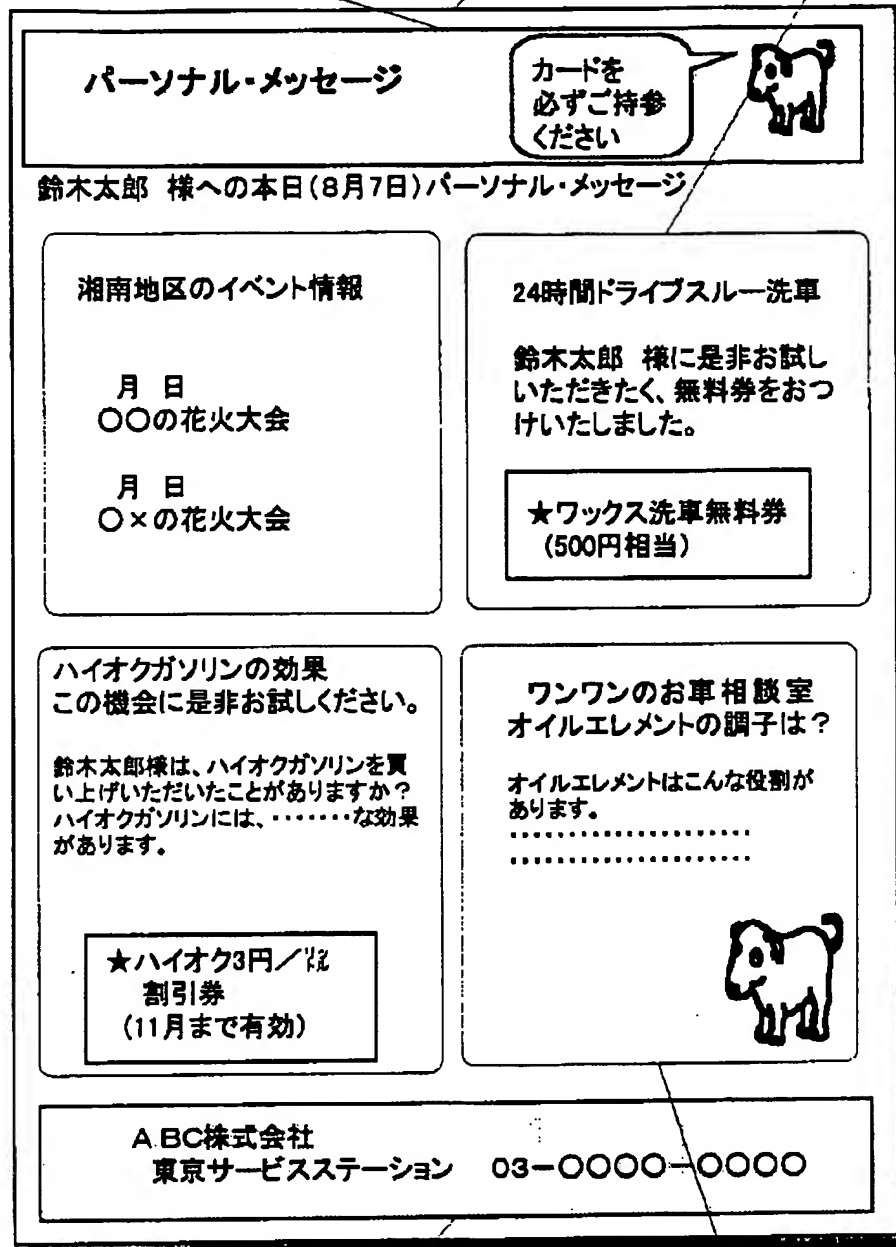 パーソナル・メッセージ
カードを
必ずご持参
ください
鈴木太郎 様への本日(8月7日)パーソナル・メッセージ
湘南地区のイベント情報
月 日
〇〇の花火大会
月 日
〇×の花火大会
24時間ドライブスルー洗車
鈴木太郎 様に是非お試し
いただきたく、無料券をおつ
けいたしました。
★ワックス洗車無料券
(500円相当)
ハイオクガソリンの効果
この機会に是非お試しください。
鈴木太郎様は、ハイオクガソリンを買
い上げいただいたことがありますか?
ハイオクガソリンには、・・・・・・・な効果
があります。
★ハイオク3円/㍑
割引券
(11月まで有効)
ワンワンのお車相談室
オイルエレメントの調子は?
オイルエレメントはこんな役割が
あります。
・・・・・・・・・・・・・・・・・・・・・
・・・・・・・・・・・・・・・・・・・・・
ABC株式会社
東京サービスステーション 03-〇〇〇〇-〇〇〇〇